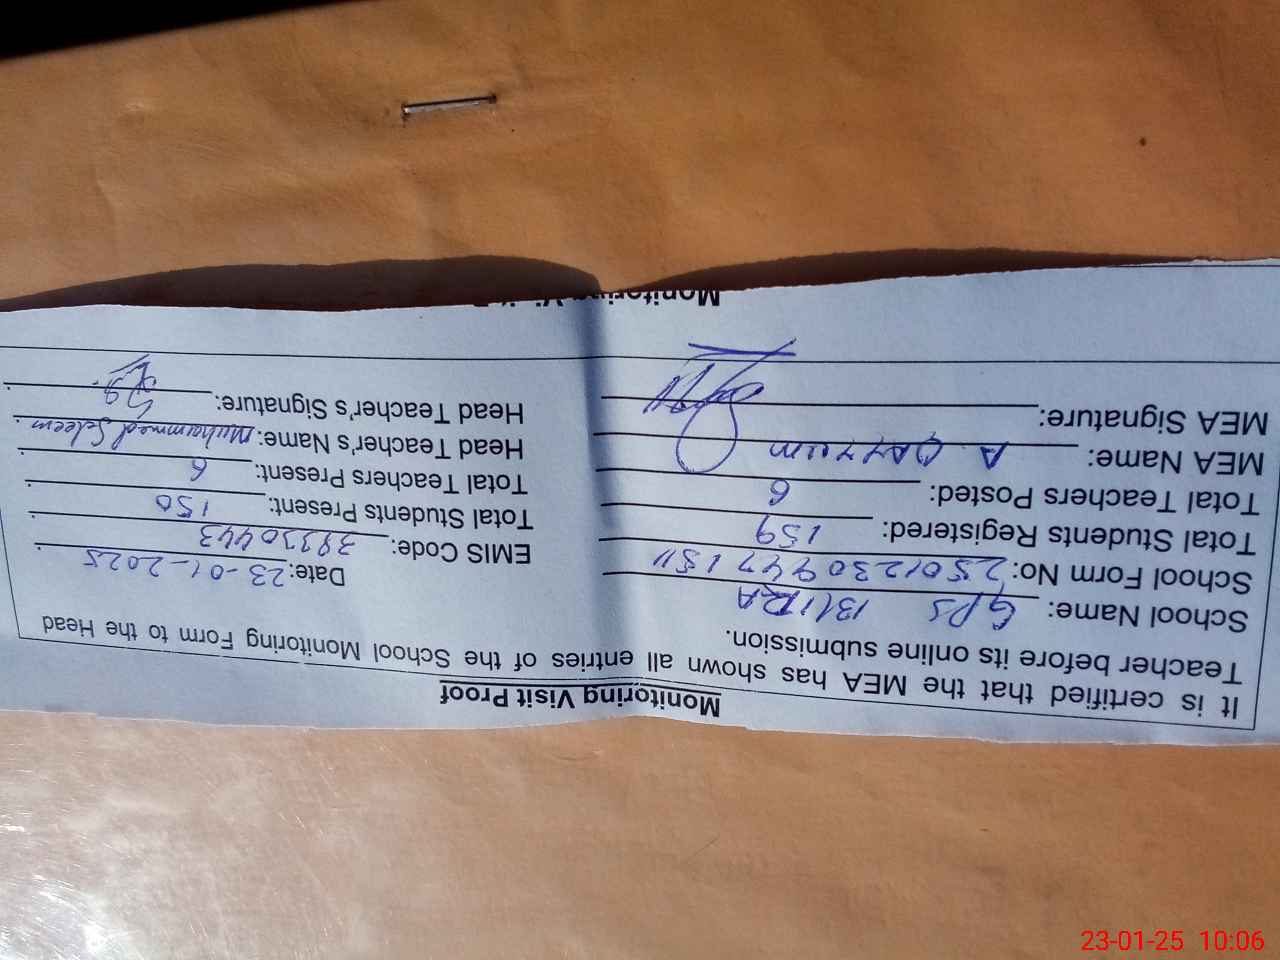 Monitoring Visit Proof
It is certified that the MEA has shown all entries of the School Monitoring Form to the Head
Teacher before its online submission.
School Name: GPS
Date: 23-01-2025
School Form No:
EMIS Code: 38330443
Total Students Registered: 159
Total Students Present: 150
Total Teachers Posted: 6
Total Teachers Present: 6
MEA Name: A. Qayyum
Head Teacher's Name: Muhammed Seleem
MEA Signature:
Head Teacher's Signature:
Monitoring
23-01-25 10:06